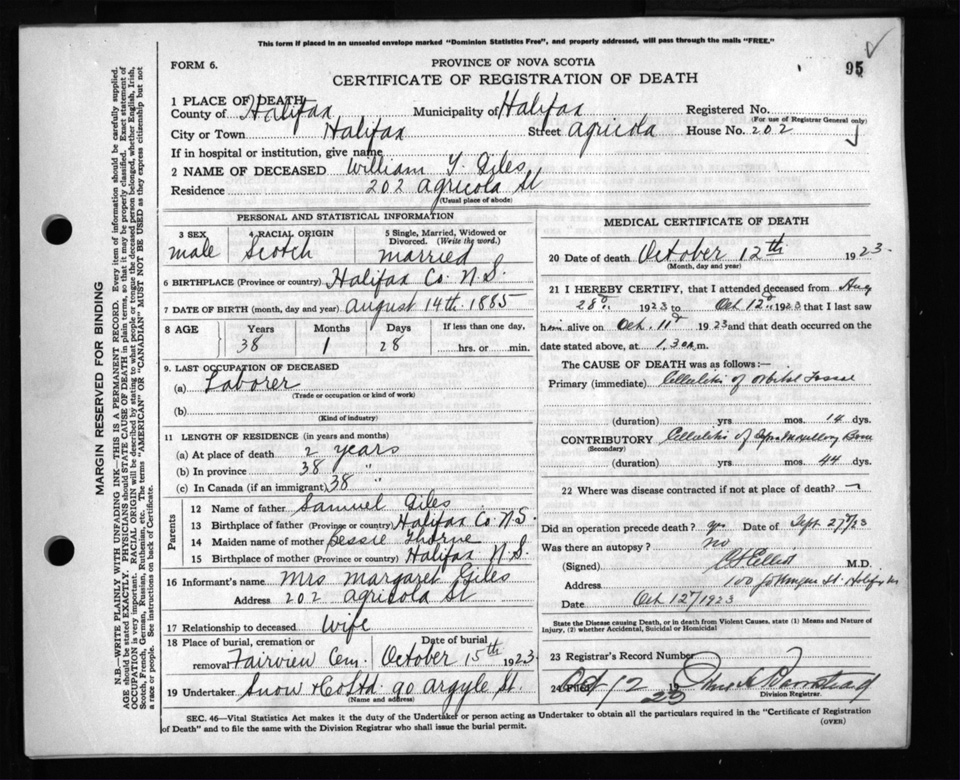 This form if placed in an unsealed envelope marked "Dominion Statistics Free", and properly addressed, will pass through the mails "FREE."
FORM 6.
PROVINCE OF NOVA SCOTIA
CERTIFICATE OF REGISTRATION OF DEATH
95
1 PLACE OF DEATH
County of Halifax Municipality of Halifax Registered No.
(For use of Registrar General only)
City or Town Halifax Street Agricola House No. 202
If in hospital or institution, give name
2 NAME OF DECEASED William Y. Giles
Residence 202 Agricola St
(Usual place of abode)
PERSONAL AND STATISTICAL INFORMATION
3 SEX 4 RACIAL ORIGIN 5 Single, Married, Widowed or Divorced. (Write the word.)
male Scotch married
6 BIRTHPLACE (Province or country) Halifax Co. N.S.
7 DATE OF BIRTH (month, day and year) August 14th 1885
8 AGE Years Months Days If less than one day,
38 1 28 hrs. or min.
9. LAST OCCUPATION OF DECEASED
(a) Laborer
(Trade or occupation or kind of work)
(b)
(Kind of industry)
11 LENGTH OF RESIDENCE (in years and months)
(a) At place of death 2 years
(b) In province 38 "
(c) In Canada (if an immigrant) 38 "
Parents
12 Name of father Samuel Giles
13 Birthplace of father (Province or country) Halifax Co N.S.
14 Maiden name of mother Bessie Thorne
15 Birthplace of mother (Province or country) Halifax N.S.
16 Informant's name Mrs Margaret Giles
Address 202 Agricola St
17 Relationship to deceased Wife
18 Place of burial, cremation or removal Fairview Cem. Date of burial October 15th 1923
19 Undertaker Snow & Co Ltd. 90 Argyle St.
(Name and address)
MEDICAL CERTIFICATE OF DEATH
20 Date of death October 12th 1923
(Month, day and year)
21 I HEREBY CERTIFY, that I attended deceased from Aug
28 1923 to Oct 12 1923 that I last saw
him alive on Oct. 11 1923 and that death occurred on
date stated above, at 1.30 a.m.
The CAUSE OF DEATH was as follows:—
Primary (immediate) Cellulitis of orbital fossa
(duration) yrs mos. 14 dys.
CONTRIBUTORY Cellulitis of
(Secondary)
(duration) yrs mos. 44 dys.
22 Where was disease contracted if not at place of death?
Did an operation precede death? yes Date of Sept. 27/23
Was there an autopsy? no
(Signed) M.D.
Address 100 St. Halifax
Date Oct. 12/1923
State the Disease causing Death, or in death from Violent Causes, state (1) Means and Nature of Injury, (2) whether Accidental, Suicidal or Homicidal
23 Registrar's Record Number
24 Filed Oct 12 1923
Division Registrar.
SEC. 46—Vital Statistics Act makes it the duty of the Undertaker or person acting as Undertaker to obtain all the particulars required in the "Certificate of Registration
of Death" and to file the same with the Division Registrar who shall issue the burial permit.
(OVER)
MARGIN RESERVED FOR BINDING
N.B.—WRITE PLAINLY WITH UNFADING INK—THIS IS A PERMANENT RECORD. Every item of information should be carefully supplied.
AGE should be stated EXACTLY. PHYSICIANS should STATE CAUSE OF DEATH in plain terms, so that it may be properly classified. Exact statement of
OCCUPATION is very important. RACIAL ORIGIN will be described by stating to what people or tongue the deceased person belonged, whether English, Irish,
Scotch, French, German, Russian, Ruthenian, etc. The terms "AMERICAN" OR "CANADIAN" MUST NOT BE USED as they express citizenship but not
a race or people. See instructions on back of Certificate.